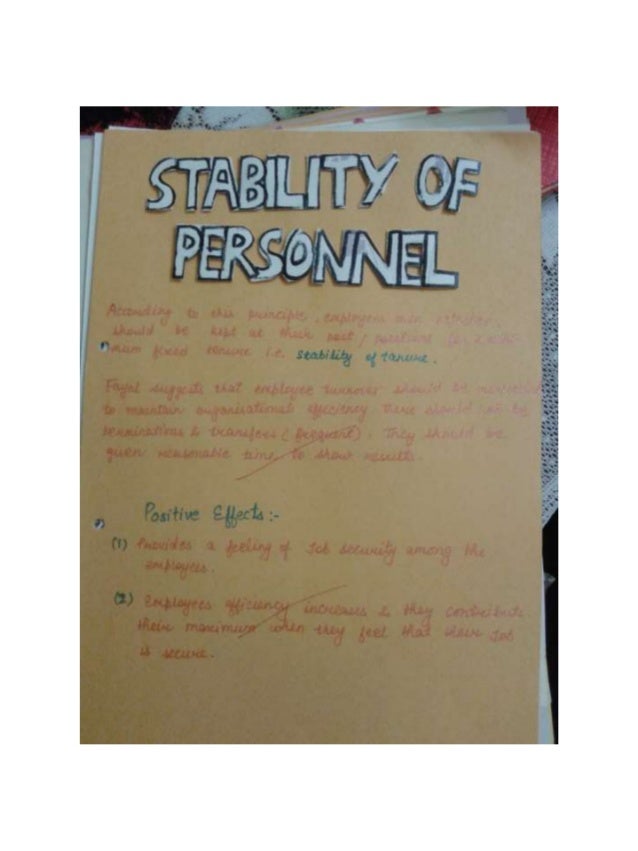 STABILITY OF
PERSONNEL
According to this principle, employees once
should be kept at their post / positions for a
mum fixed tenure i.e. stability of tanure.
Fayol suggests that employee turnover should be
to maintain organisational efficiency there should not be
terminations & transfers (frequent). They should be
given reasonable time to show results.
Positive Effects :-
(1) Provides a feeling of Job security among the
employees.
(2) Employees efficiency increases & they contribute
their maximum when they feel that their Job
is secure.